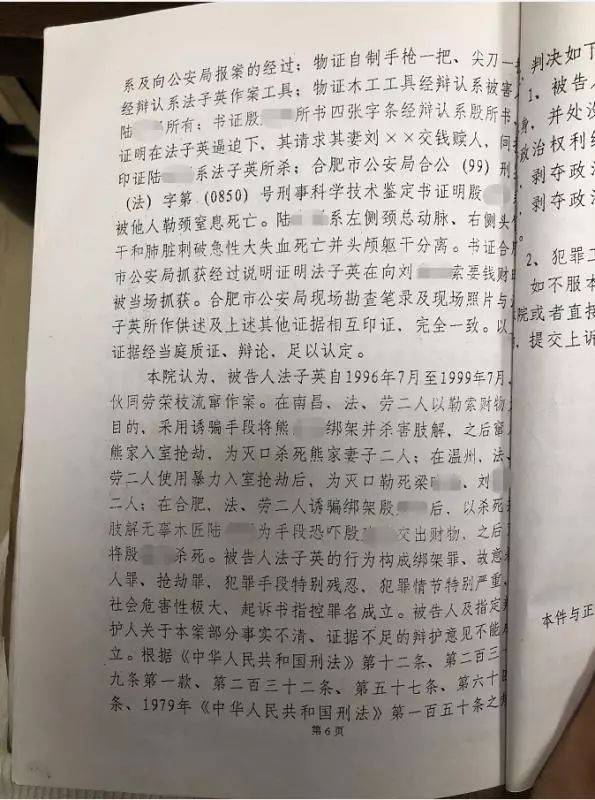 系及向公安局报案的经过；物证自制手枪一把、尖刀一
经辩认系法子英作案工具；物证木工工具经辩认系被害
陆 所有；书证殷 所书四张字条经辩认系殷所书，
证明在法子英逼迫下，其请求其妻刘××交钱赎人，间
印证陆 系法子英所杀；合肥市公安局合公 (99) 刑
(法) 字第 (0850) 号刑事科学技术鉴定书证明殷
被他人勒颈窒息死亡。陆 系左侧颈总动脉、右侧头
干和肺脏刺破急性大失血死亡并头颅躯干分离。书证合
市公安局抓获经过说明证明法子英在向刘 索要钱财时
被当场抓获。合肥市公安局现场勘查笔录及现场照片与
子英所作供述及上述其他证据相互印证，完全一致。以
证据经当庭质证、辩论，足以认定。
本院认为，被告人法子英自1996年7月至1999年7月，
伙同劳荣枝流窜作案。在南昌，法、劳二人以勒索财物
目的，采用诱骗手段将熊 绑架并杀害肢解，之后窜
熊家入室抢劫，为灭口杀死熊家妻子二人；在温州，法、
劳二人使用暴力入室抢劫后，为灭口勒死梁 、刘
二人；在合肥，法、劳二人诱骗绑架殷 后，以杀死
肢解无辜木匠陆 为手段恐吓殷 交出财物，之后
将殷 杀死。被告人法子英的行为构成绑架罪、故意
人罪、抢劫罪，犯罪手段特别残忍，犯罪情节特别严重，
社会危害性极大，起诉书指控罪名成立。被告人及指定
护人关于本案部分事实不清、证据不足的辩护意见不能
立。根据《中华人民共和国刑法》第十二条、第二百三
九条第一款、第二百三十二条、第五十七条、第六十四
条、1979年《中华人民共和国刑法》第一百五十条之
第6页
判决如下
1、被告人
身，并处没
政治权利终
，剥夺政治
剥夺政治
2、犯罪工
如不服本
院或者直接
，提交上诉
本件与正